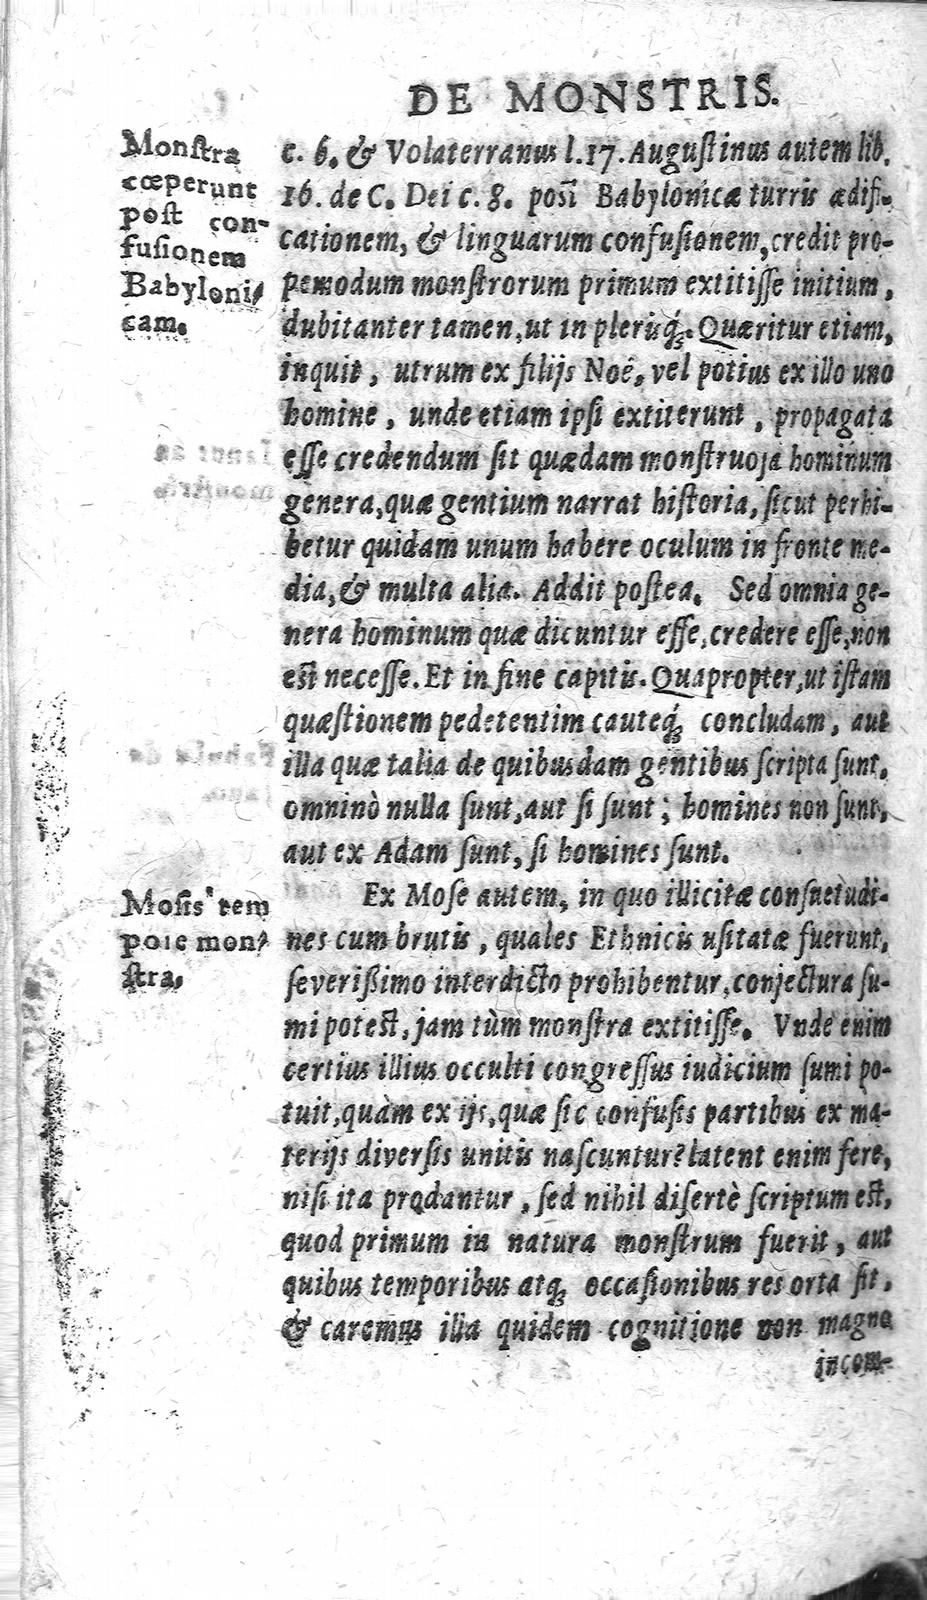 DE MONSTRIS.
Monſtra
cœperunt
poſt con-
fuſionem
Babyloni-
cam.
c. 6. & Volaterranus l. 17. Auguſtinus autem lib.
16. de C. Dei c. 8. poſt Babylonicæ turris ædifi-
cationem, & linguarum confuſionem, credit pro-
pemodum monſtrorum primum extitiſſe initium,
dubitanter tamen, ut in pleriſq́;. Quæritur etiam,
inquit, utrum ex filijs Noë, vel potius ex illo uno
homine, unde etiam ipſi extiterunt, propagata
eſſe credendum ſit quædam monſtruoſa hominum
genera, quæ gentium narrat hiſtoria, ſicut perhi-
betur quidam unum habere oculum in fronte me-
dia, & multa alia. Addit poſtea. Sed omnia ge-
nera hominum quæ dicuntur eſſe, credere eſſe, non
eſt neceſſe. Et in fine capitis. Quapropter, ut iſtam
quæſtionem pedetentim cauteq́; concludam, aut
illa quæ talia de quibusdam gentibus ſcripta ſunt,
omninò nulla ſunt, aut ſi ſunt; homines non ſunt,
aut ex Adam ſunt, ſi homines ſunt.
Moſis tem
pore mon-
ſtra.
Ex Moſe autem, in quo illicitæ conſuetudi-
nes cum brutis, quales Ethnicis uſitatæ fuerunt,
ſeverißimo interdicto prohibentur, conjectura ſu-
mi poteſt, jam tùm monſtra extitiſſe. Vnde enim
certius illius occulti congreſſus iudicium ſumi po-
tuit, quàm ex ijs, quæ ſic confuſis partibus ex ma-
terijs diverſis unitis naſcuntur? latent enim fere,
niſi ita prodantur, ſed nihil diſertè ſcriptum eſt,
quod primum in natura monſtrum fuerit, aut
quibus temporibus atq; occaſionibus res orta ſit,
& caremus illa quidem cognitione non magno
incom-